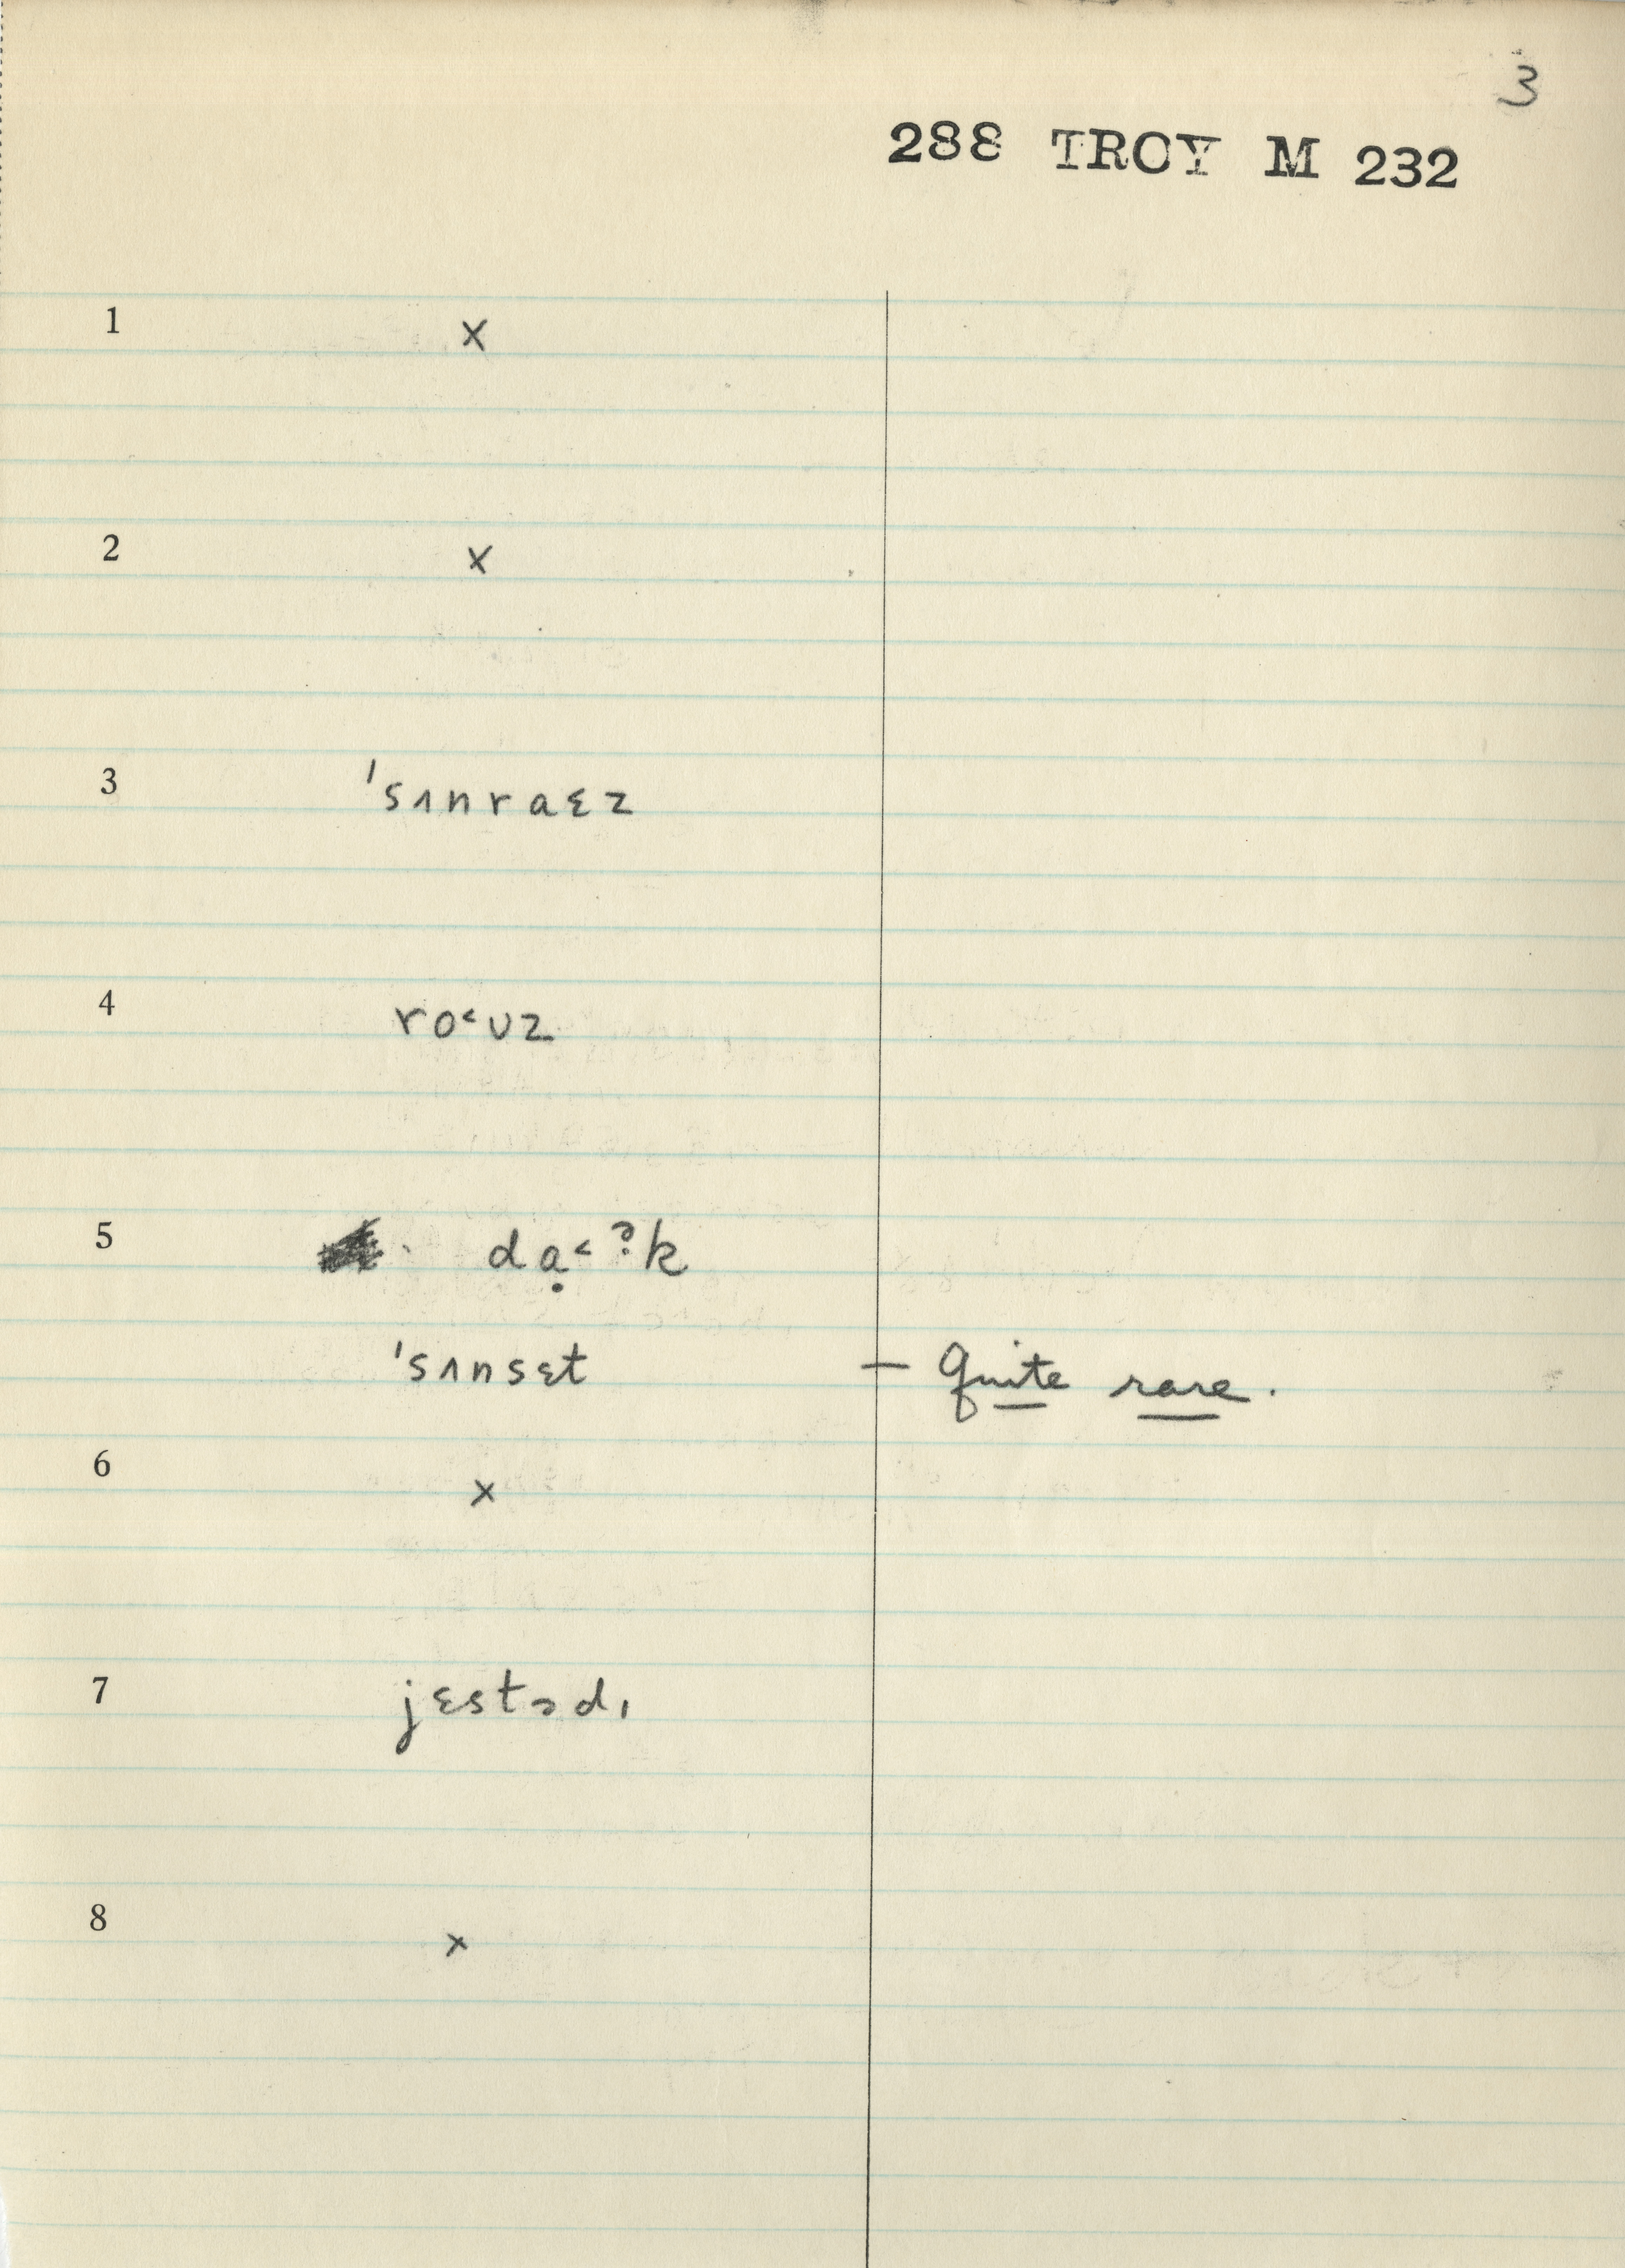 3
288 TROY M 232
1 x
2 x
3 ˈsʌnraɛz
4 ro˂ʊz
5 dạ˂ ˀ̣k
ˈsʌnsɛt — quite rare.
6 x
7 jɛstɘdɪ
8 x